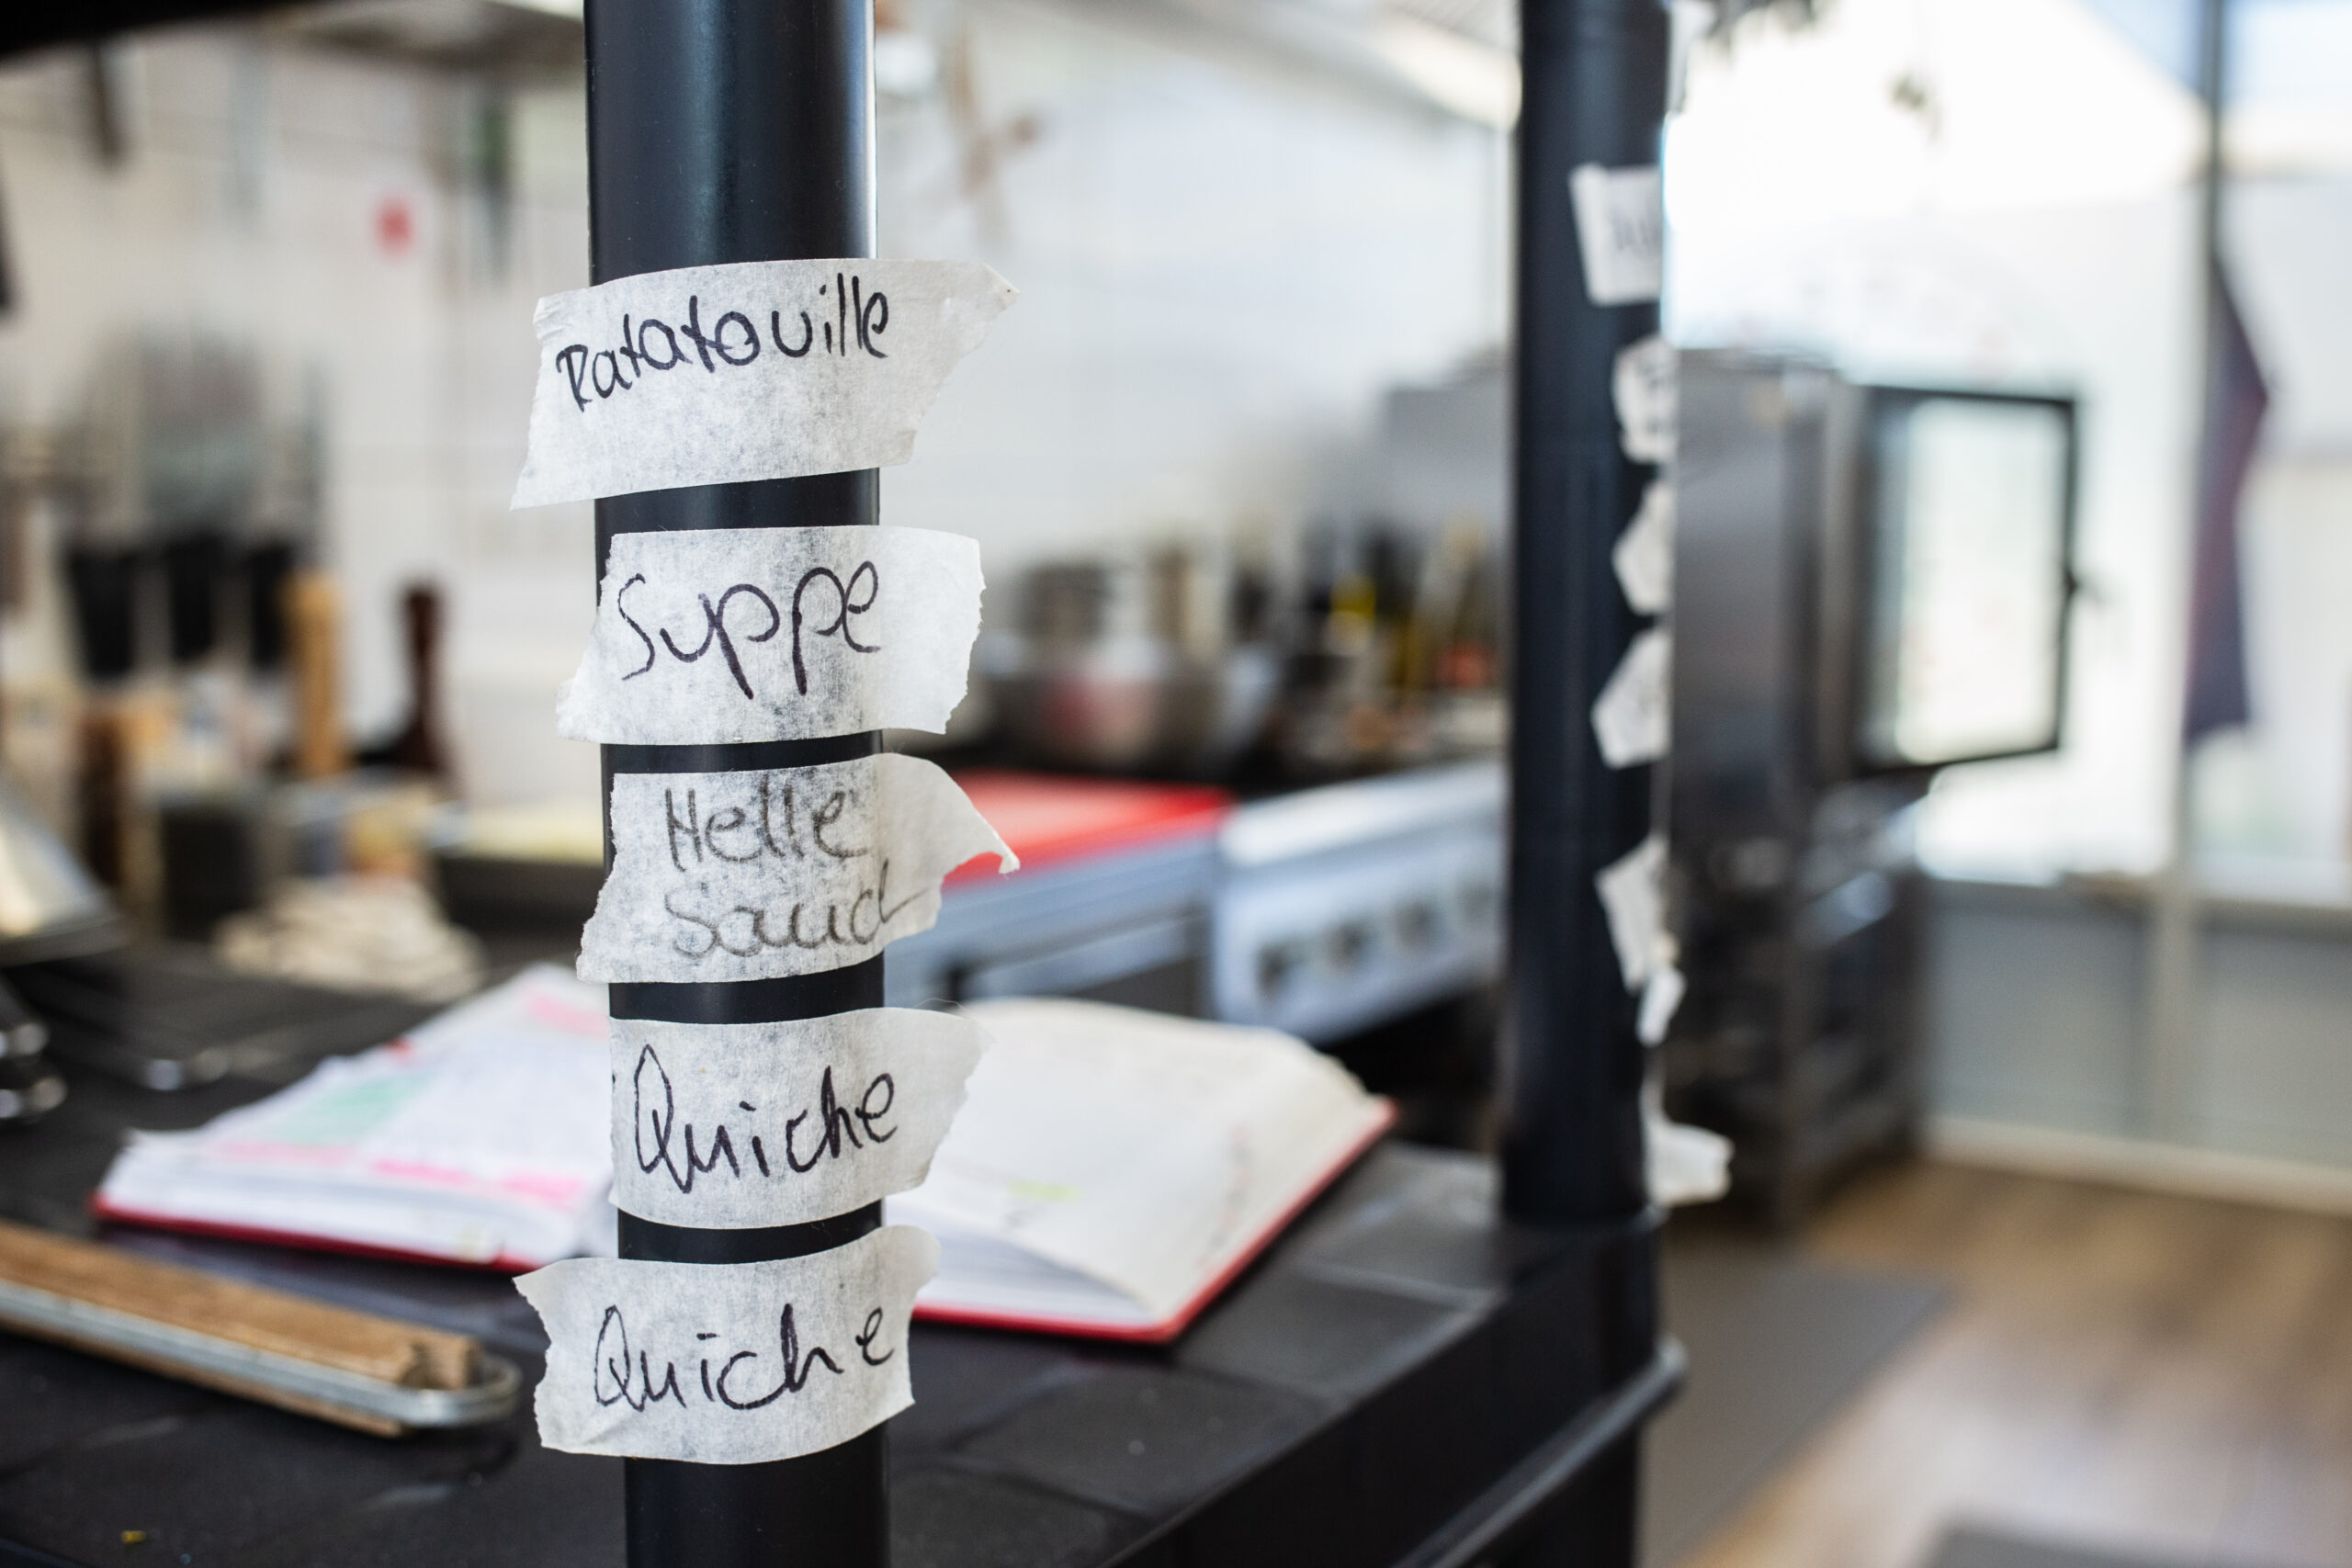 Ratatouille
Suppe
Helle
Sauce
Quiche
Quiche